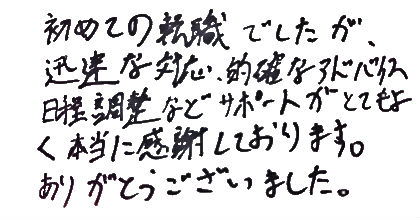 初めての転職でしたが、
迅速な対応、的確なアドバイス
日程調整などサポートがとてもよ
く本当に感謝しております。
ありがとうございました。